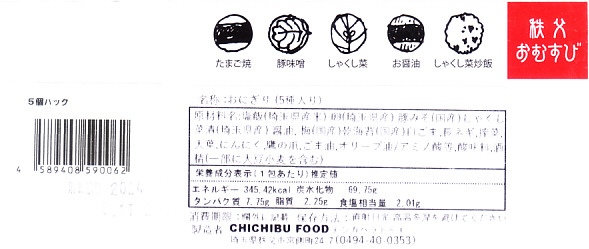 たまご焼 豚味噌 しゃくし菜 お醤油 しゃくし菜炒飯
秩父
おむすび
5個パック
4 589408 590062
名称:おにぎり(5種入り)
原材料名:塩飯(埼玉県産米)卵(埼玉県産)豚みそ(国産)しゃくし
菜漬(埼玉県産)醤油、梅(国産)焼海苔(国産)白ごま、長ネギ、搾菜、
大葉、にんにく、鷹の爪、ごま油、オリーブ油/アミノ酸等、酸味料、酒
精(一部に大豆小麦を含む)
栄養成分表示(1包あたり)推定値
エネルギー 345.42kcal 炭水化物 69.75g
タンパク質 7.75g 脂質 2.25g 食塩相当量 2.01g
消費期限:欄外に記載 保存方法:直射日光、高温多湿を避けてください
製造者 CHICHIBU FOOD
埼玉県秩父市宮側町24-7(0494-40-0353)